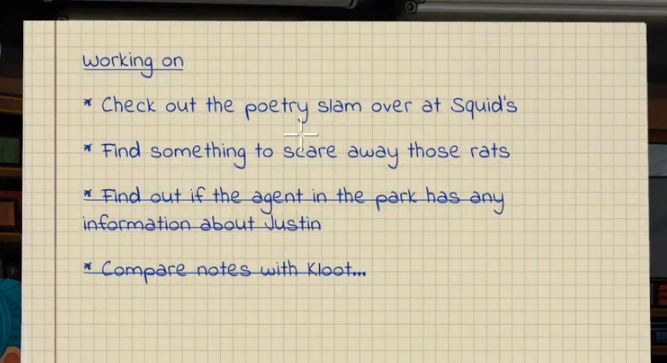 Working on
* Check out the poetry slam over at Squid's
* Find something to scare away those rats
* Find out if the agent in the park has any
information about Justin
* Compare notes with Kloot...